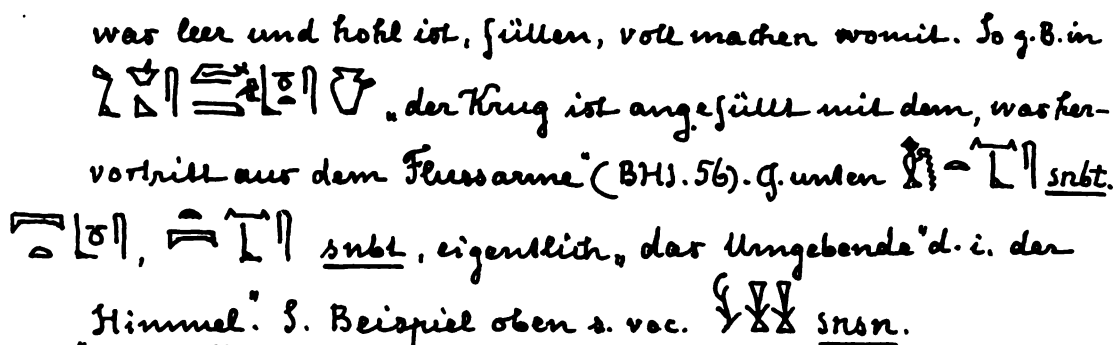 was leer und hohl ist, füllen, voll machen womit. So z.B. in
„der Krug ist angefüllt mit dem, was her-
vortritt aus dem Flussarme" (BHI. 56). G. unten snbt.
, snbt, eigentlich „das Umgebende" d. i. der
Himmel". S. Beispiel oben s. voc. snsn.